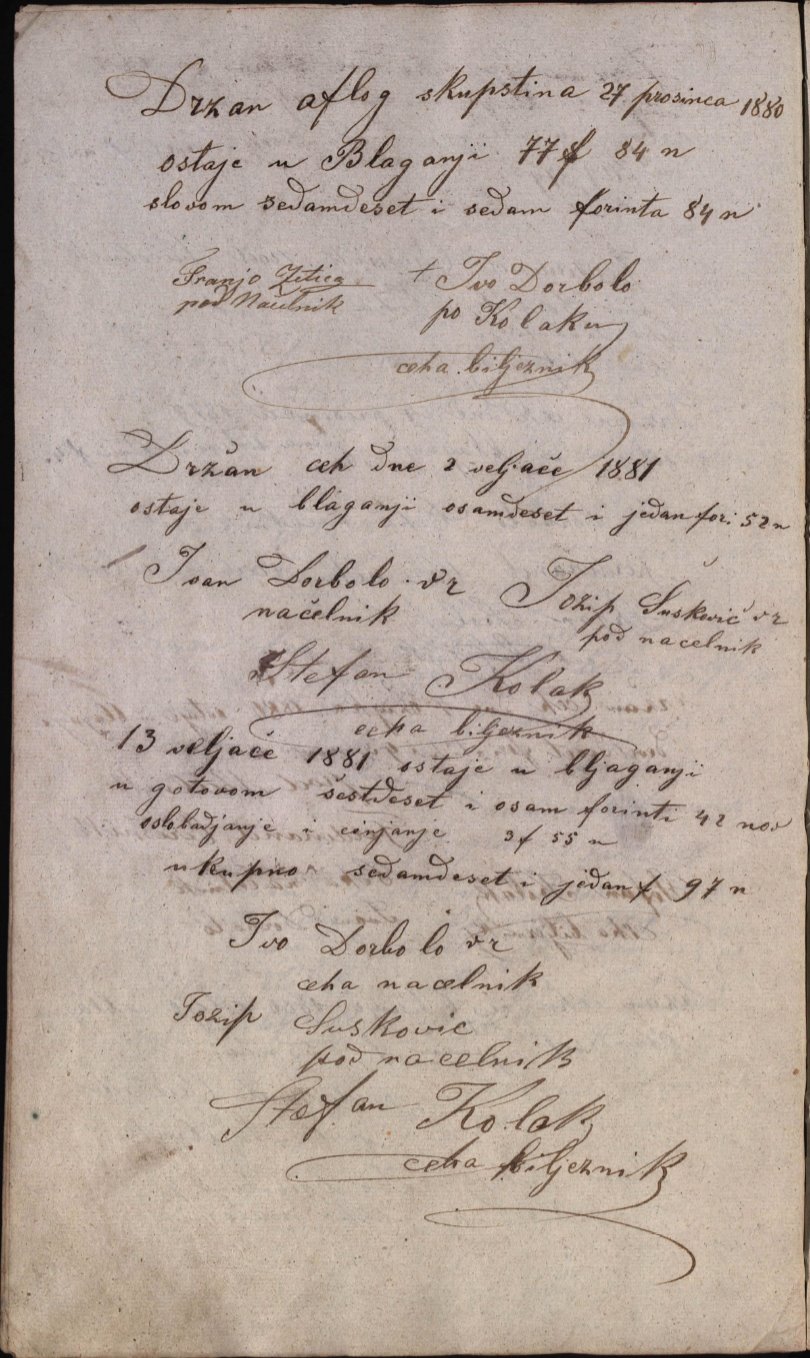 Držan aflog skupstina 27 prosinca 1880
ostaje u Blaganji 77 f 84 n
slovom sedamdeset i sedam forinta 84 n
Franjo Zetica + Ivo Dorbolo
pod Načelnik po Kolaku
ceha biljeznik
Držan ceh dne 2 veljače 1881
ostaje u blaganji osamdeset i jedan fori 52 n
Ivan Dorbolo vr Jozip Susković vr
načelnik pod nacelnik
Stefan Kolak
ceha biljeznik
13 veljače 1881 ostaje u bljaganji
u gotovom šestdeset i osam forinti 42 nov
oslobadjanje i cinjanje 3 f 55 n
ukupno sedamdeset i jedan f 97 n
Ivo Dorbolo vr
ceha nacelnik
Jozip Suskovic
pod nacelnik
Stefan Kolak
ceha biljeznik